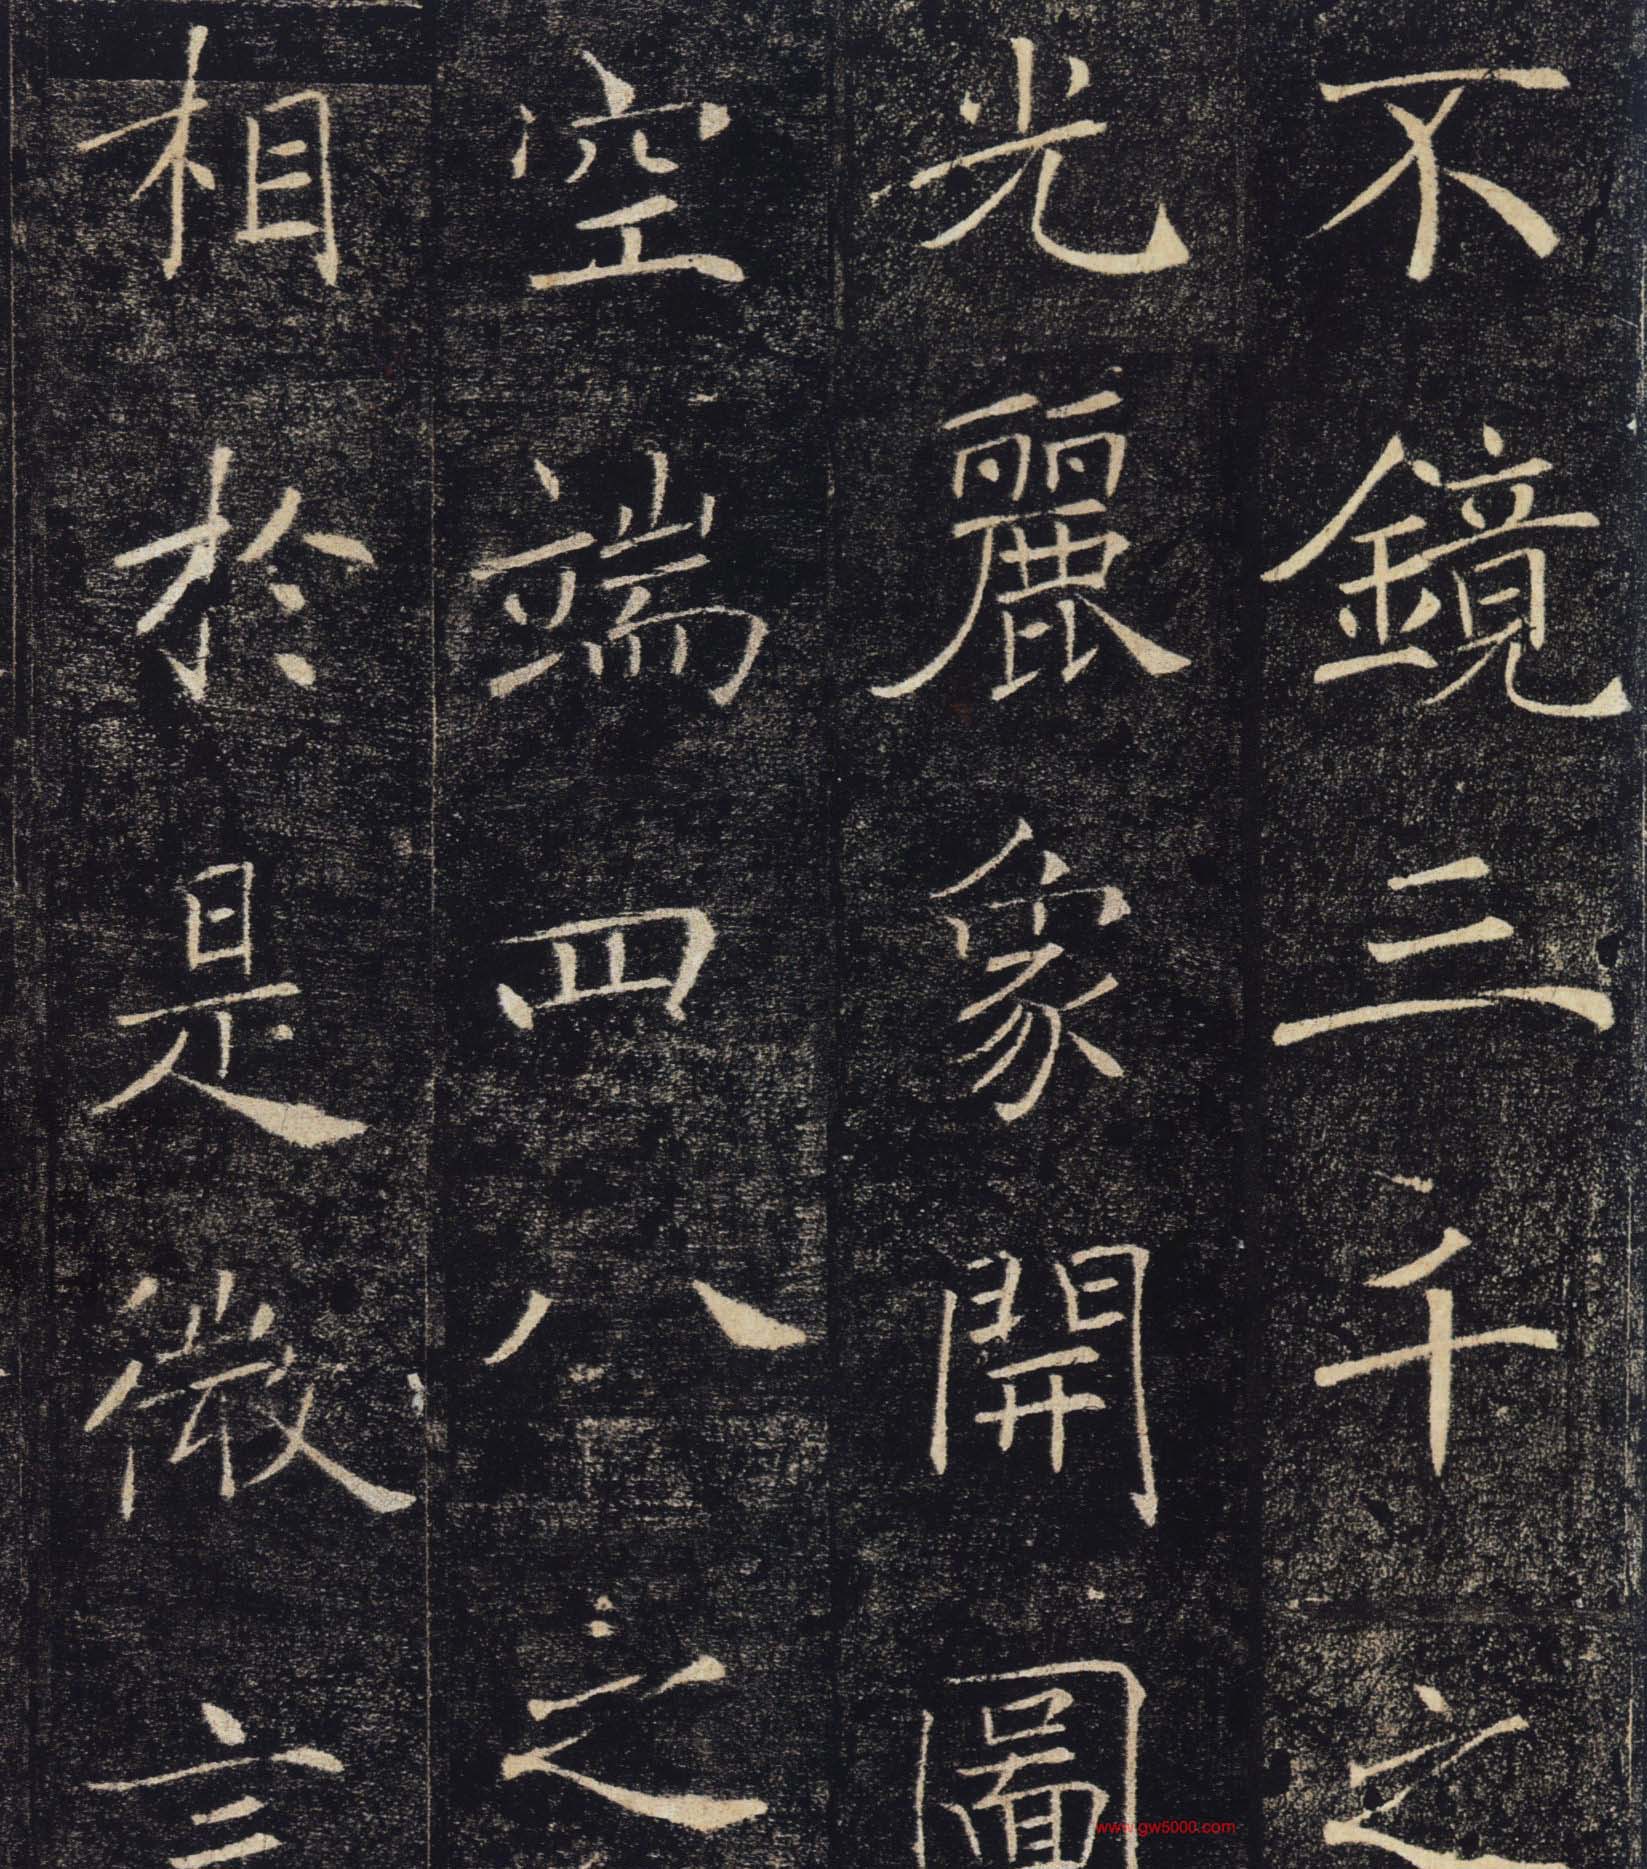 不鏡三千之
光麗象開圖
空端四八之
相於是微言
www.gw5000.com